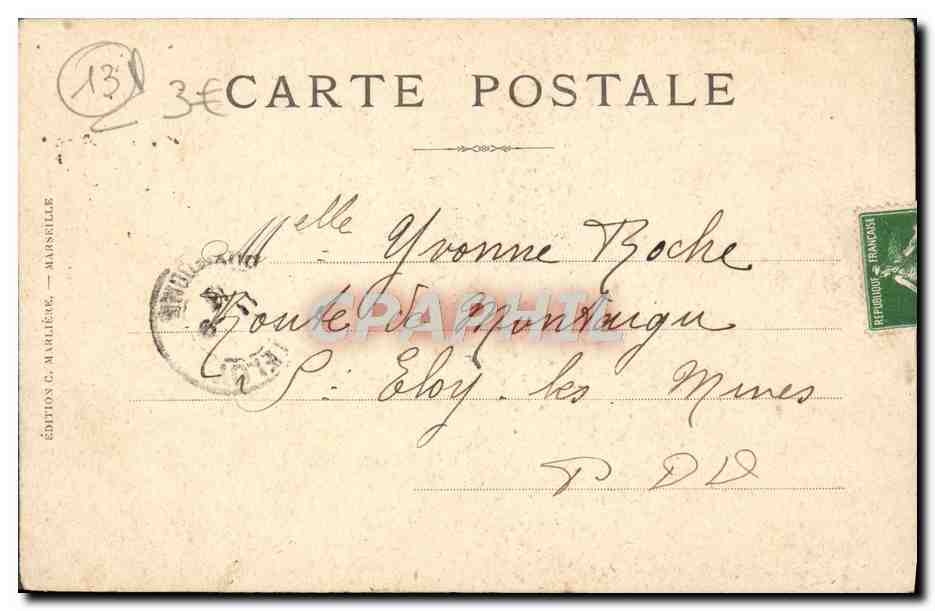 13
3€
CARTE POSTALE
Melle Yvonne Roche
Route de Montaigu
à St Eloy-les Mines
P D D
ÉDITION C. MARLIÈRE. — MARSEILLE
REPUBLIQUE FRANÇAISE
CPAPHIL